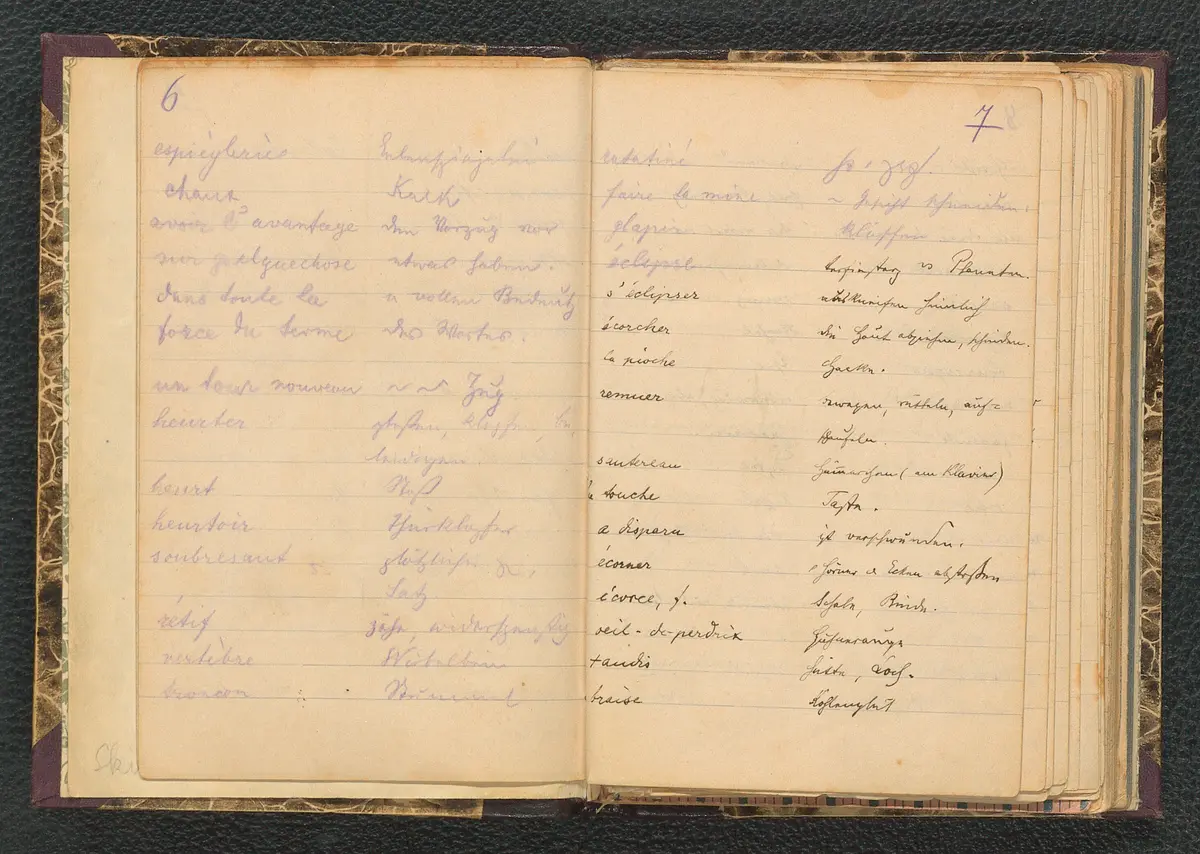 6
espièglerie Eulenspiegelei
chaux Kalk
avoir l'avantage den Vorzug vor
sur quelquechose etwas haben.
dans toute la n vollen Bedeutg
force du terme des Wortes.
un tour nouveau Zug
heurter stoßen, klopfen, be,
leidigen.
heurt Stoß
heurtoir Thürklopfer
soubresaut plötzlicher
Satz
rétif zähe, widerspenstig
vertèbre Wirbelbein
tronçon Stummel
7
ratatiné
faire la mine ~ Gesicht schneiden.
glapir kläffen
éclipse Planeten.
s'éclipser auskneifen heimlich
écorcher die Haut abziehen, schinden.
la pioche Hacke.
remuer bewegen, rütteln, auf=
schaufeln.
sautereau Hämmerchen (am Klavier)
la touche Taste.
a disparu ist verschwunden.
écorner Hörner o Ecken abstoßen
écorce, f. Schale, Rinde.
oeil-de-perdrix Hühnerauge
taudis Hütte, Loch.
braise Kohlenglut
Ski